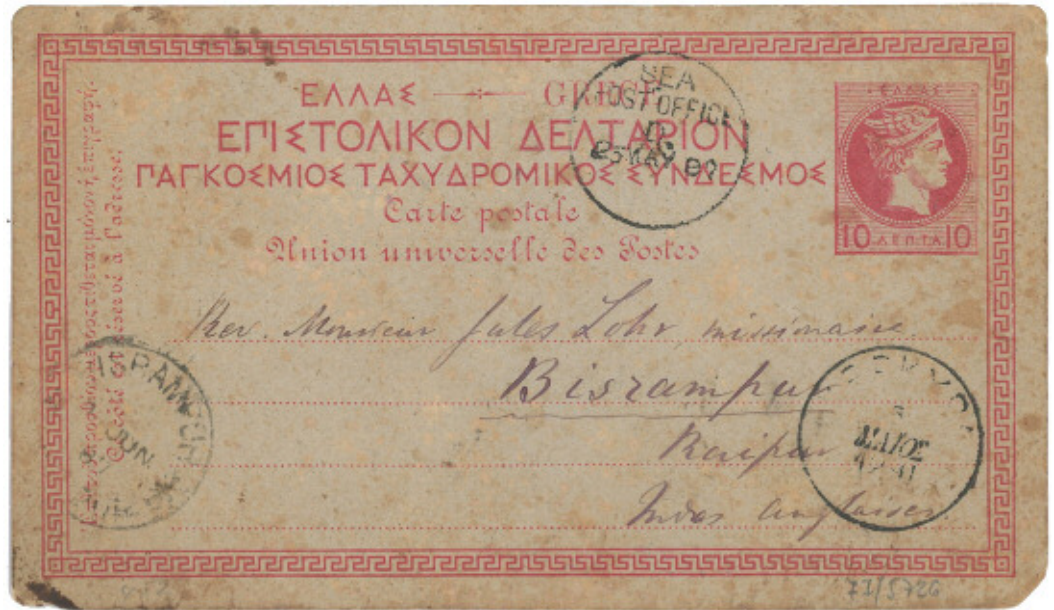 ΕΛΛΑΣ — GRÈCE
ΕΠΙΣΤΟΛΙΚΟΝ ΔΕΛΤΑΡΙΟΝ
ΠΑΓΚΟΣΜΙΟΣ ΤΑΧΥΔΡΟΜΙΚΟΣ ΣΥΝΔΕΣΜΟΣ
Carte postale
Union universelle des Postes
ΕΛΛΑΣ
10 ΛΕΠΤΑ 10
SEA
POST OFFICE
25 MAY 90
Rev. Monsieur Jules Lohr, missionaire
Bisrampur
Raipur
Indes anglaises
JUN
ΜΑΙΟΣ
Côté réservé à l'adresse.
71/5726